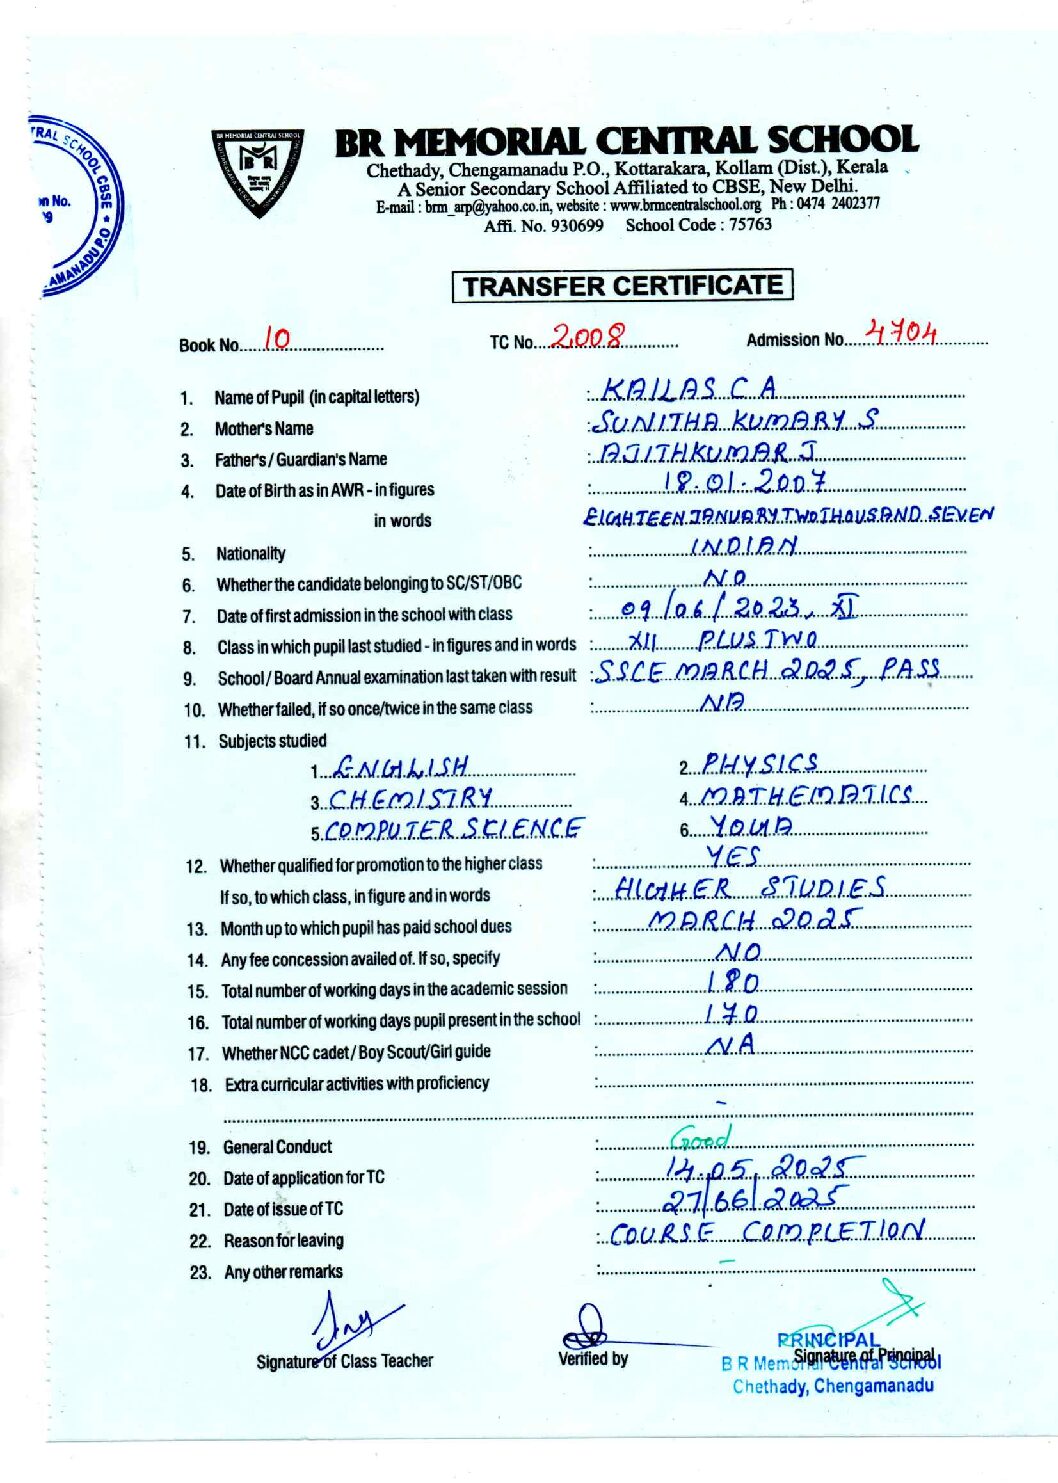 TRAL SCHOOL CBSE ★
on No.
99
AMANADU P.O
BR MEMORIAL CENTRAL SCHOOL
BR MEMORIAL CENTRAL SCHOOL
Chethady, Chengamanadu P.O., Kottarakara, Kollam (Dist.), Kerala
A Senior Secondary School Affiliated to CBSE, New Delhi.
E-mail : brm_arp@yahoo.co.in, website : www.brmcentralschool.org Ph : 0474 2402377
Affi. No. 930699 School Code : 75763
TRANSFER CERTIFICATE
Book No. 10 TC No. 2008 Admission No. 4704
1. Name of Pupil (in capital letters) : KAILAS C A
2. Mother's Name : SUNITHA KUMARY S
3. Father's / Guardian's Name : AJITHKUMAR J
4. Date of Birth as in AWR - in figures : 18.01.2007
in words EIGHTEEN JANUARY TWO THOUSAND SEVEN
5. Nationality : INDIAN
6. Whether the candidate belonging to SC/ST/OBC : NO
7. Date of first admission in the school with class : 09/06/2023, XI
8. Class in which pupil last studied - in figures and in words : XII PLUS TWO
9. School / Board Annual examination last taken with result : SSCE MARCH 2025, PASS
10. Whether failed, if so once/twice in the same class : NA
11. Subjects studied
1. ENGLISH 2. PHYSICS
3. CHEMISTRY 4. MATHEMATICS
5. COMPUTER SCIENCE 6. YOGA
12. Whether qualified for promotion to the higher class : YES
If so, to which class, in figure and in words : HIGHER STUDIES
13. Month up to which pupil has paid school dues : MARCH 2025
14. Any fee concession availed of. If so, specify : NO
15. Total number of working days in the academic session : 180
16. Total number of working days pupil present in the school : 170
17. Whether NCC cadet / Boy Scout/Girl guide : NA
18. Extra curricular activities with proficiency :
-
19. General Conduct : Good
20. Date of application for TC : 14.05.2025
21. Date of issue of TC : 27/06/2025
22. Reason for leaving : COURSE COMPLETION
23. Any other remarks : -
Signature of Class Teacher Verified by Signature of Principal
PRINCIPAL
B R Memorial Central School
Chethady, Chengamanadu